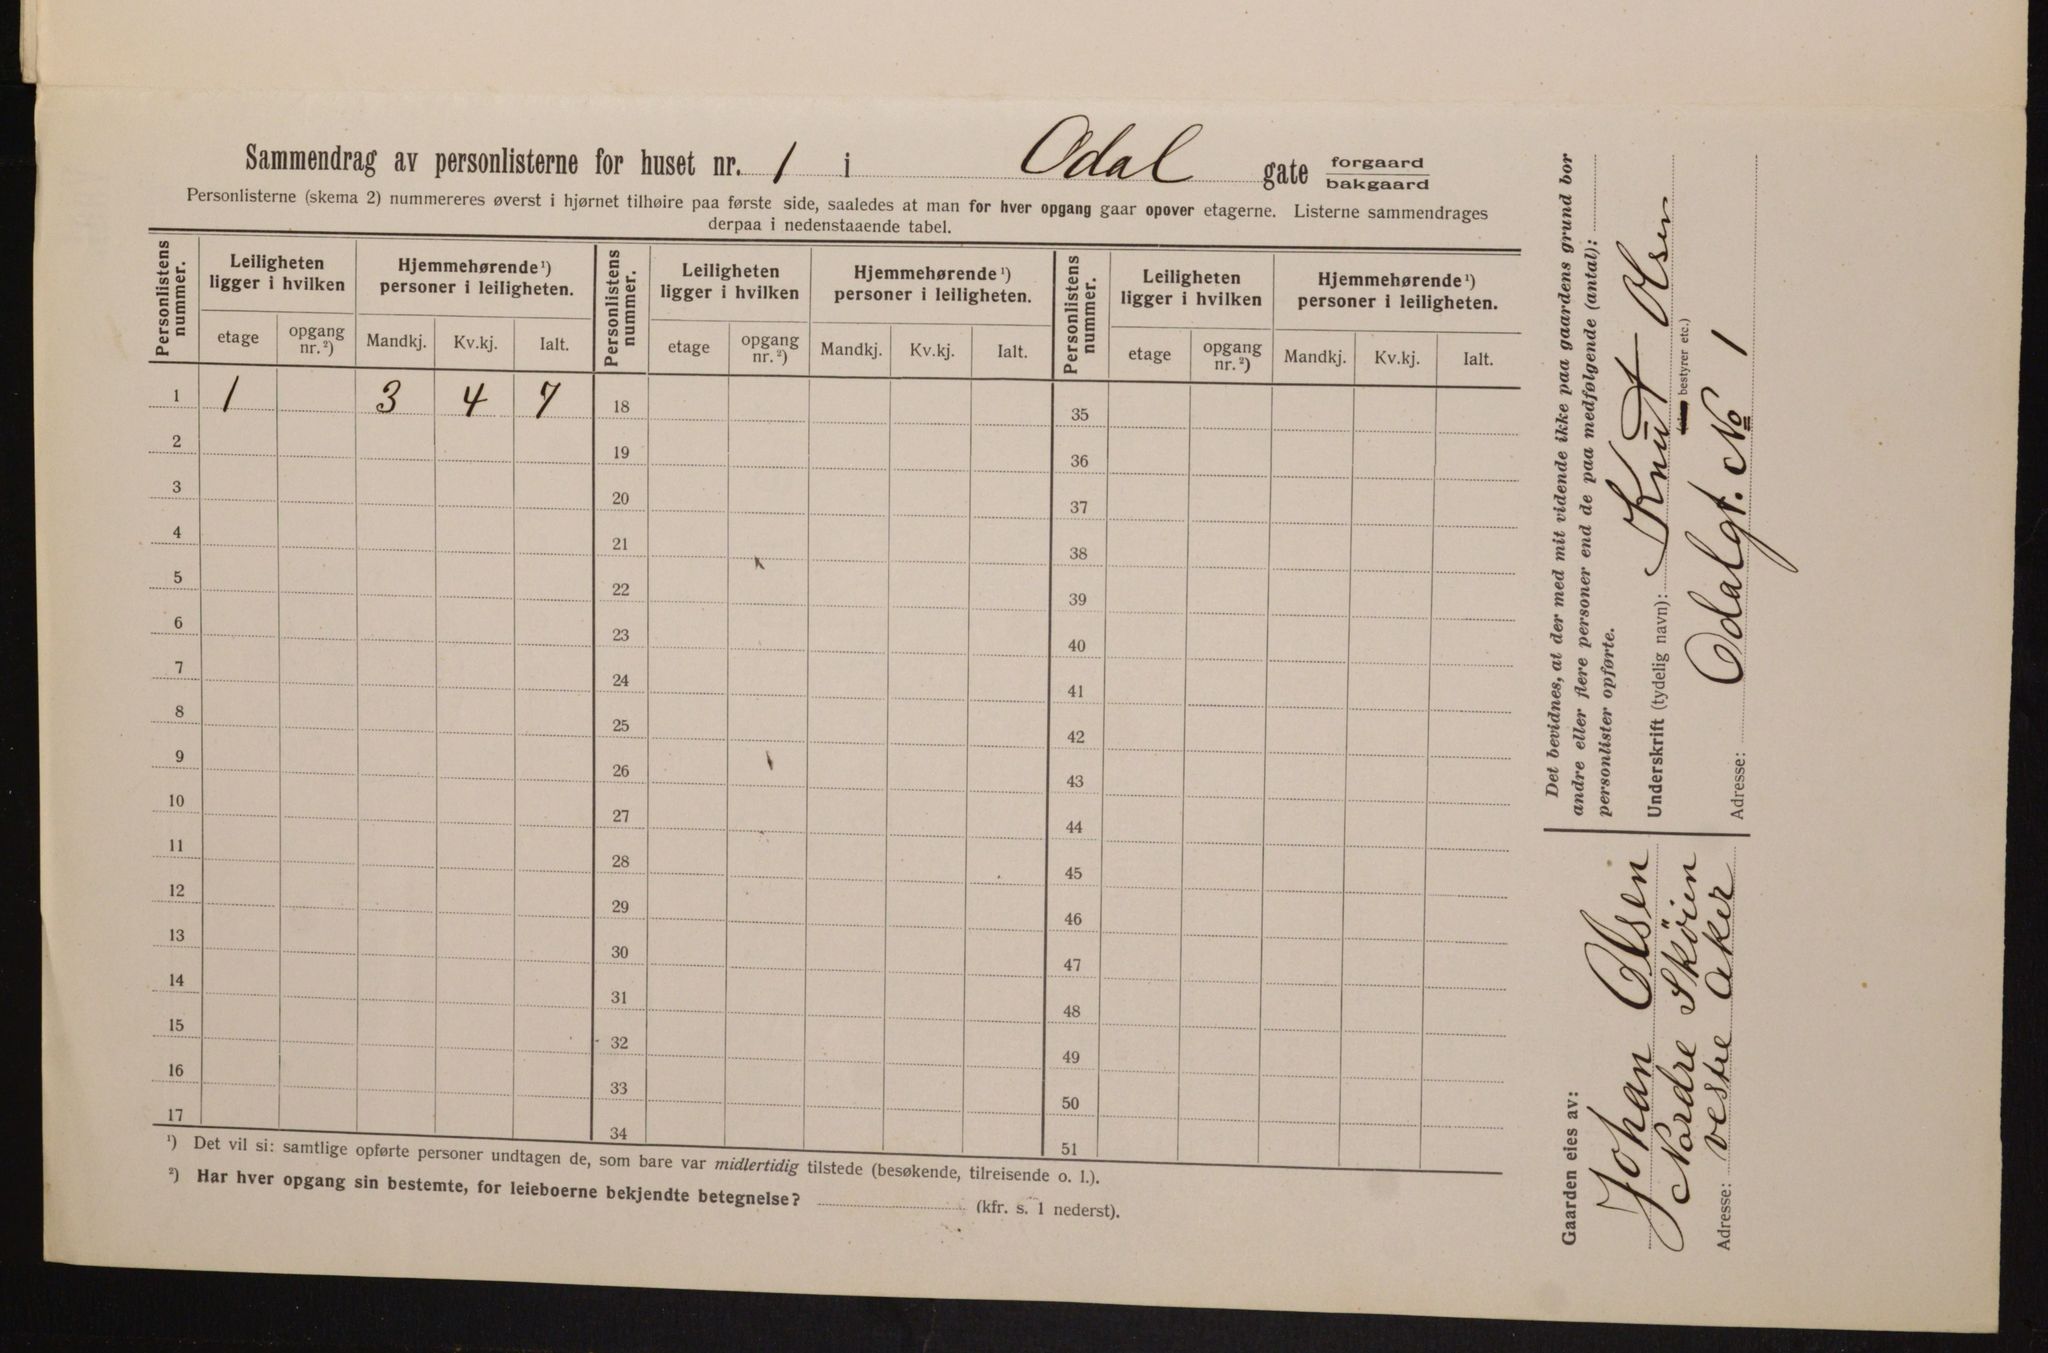 Sammendrag av personlisterne for huset nr. 1 i Odal gate forgaard
bakgaard
Personlisterne (skema 2) nummereres øverst i hjørnet tilhøire paa første side, saaledes at man for hver opgang gaar opover etagerne. Listerne sammendrages
derpaa i nedenstaaende tabel.
Personlistens nummer. Leiligheten ligger i hvilken Hjemmehørende¹) personer i leiligheten. Personlistens nummer. Leiligheten ligger i hvilken Hjemmehørende¹) personer i leiligheten. Personlistens nummer. Leiligheten ligger i hvilken Hjemmehørende¹) personer i leiligheten.
etage opgang nr.²) Mandkj. Kv.kj. Ialt. etage opgang nr.²) Mandkj. Kv.kj. Ialt. etage opgang nr.²) Mandkj. Kv.kj. Ialt.
1 1 3 4 7 18 35
2 19 36
3 20 37
4 21 38
5 22 39
6 23 40
7 24 41
8 25 42
9 26 43
10 27 44
11 28 45
12 29 46
13 30 47
14 31 48
15 32 49
16 33 50
17 34 51
¹) Det vil si: samtlige opførte personer undtagen de, som bare var midlertidig tilstede (besøkende, tilreisende o. l.).
²) Har hver opgang sin bestemte, for leieboerne bekjendte betegnelse? (kfr. s. 1 nederst).
Det bevidnes, at der med mit vidende ikke paa gaardens grund bor
andre eller flere personer end de paa medfølgende (antal):
personlister opførte.
Underskrift (tydelig navn): Knut Olsen
bestyrer etc.)
Adresse: Odalgt. No 1
Gaarden eies av:
Johan Olsen
Nordre Sköien
Adresse: vestre Aker